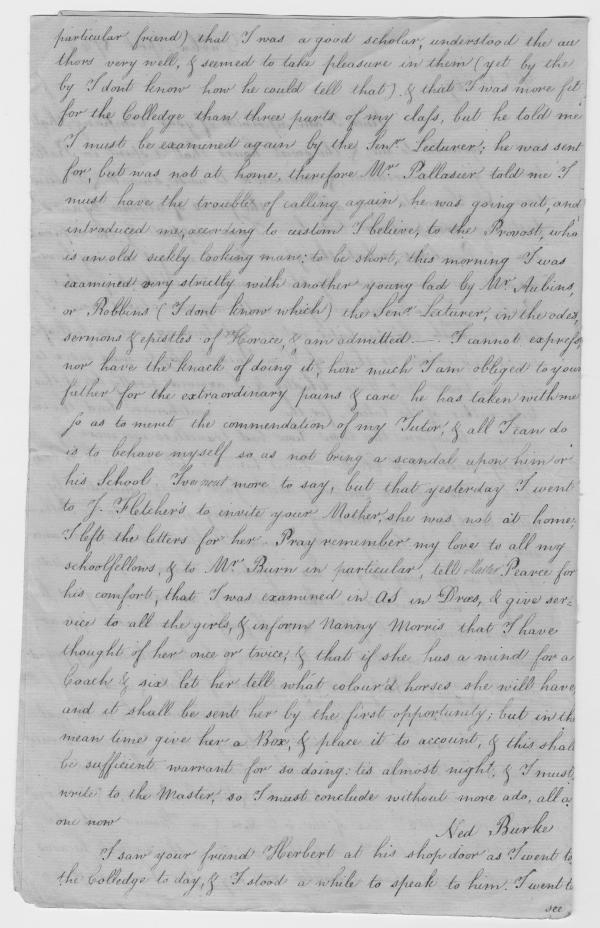 particular friend) that I was a good scholar, understood the au
thors very well, & seemed to take pleasure in them (yet by the
by I dont know how he could tell that) & that I was more fit
for the Colledge than three parts of my class, but he told me
I must be examined again by the Senr. Lecturer; he was sent
for, but was not at home, therefore Mr. Pallasier told me I
must have the trouble of calling again, he was going out, and
introduced me, according to custom I believe, to the Provost, who
is an old sickly looking man: to be short, this morning I was
examined very strictly with another young lad by Mr. Aubins,
or Robbins (I dont know which) the Senr. Lecturer, in the odes,
sermons & epistles of Horace, & am admitted —. I cannot express,
nor have the knack of doing it, how much I am obliged to your
father for the extraordinary pains & care he has taken with me
so as to merit the commendation of my Tutor, & all I can do
is to behave myself so as not bring a scandal upon him or
his School. I've more to say, but that yesterday I went
to J. Fletcher's to invite your Mother, she was not at home;
I left the letters for her. Pray remember my love to all my
schoolfellows, & to Mr. Burn in particular, tell Master Pearce for
his comfort, that I was examined in AS in Præs, & give ser=
vice to all the girls, & inform Nanny Morris that I have
thought of her once or twice; & that if she has a mind for a
Coach & six let her tell what colour'd horses she will have,
and it shall be sent her by the first opportunity; but in the
mean time give her a Box, & place it to account, & this shall
be sufficient warrant for so doing: tis almost night, & I must
write to the Master, so I must conclude without more ado, all a
one now
Ned Burke
I saw your friend Herbert at his shop door as I went to
the Colledge to day, & I stood a while to speak to him. I went to
see